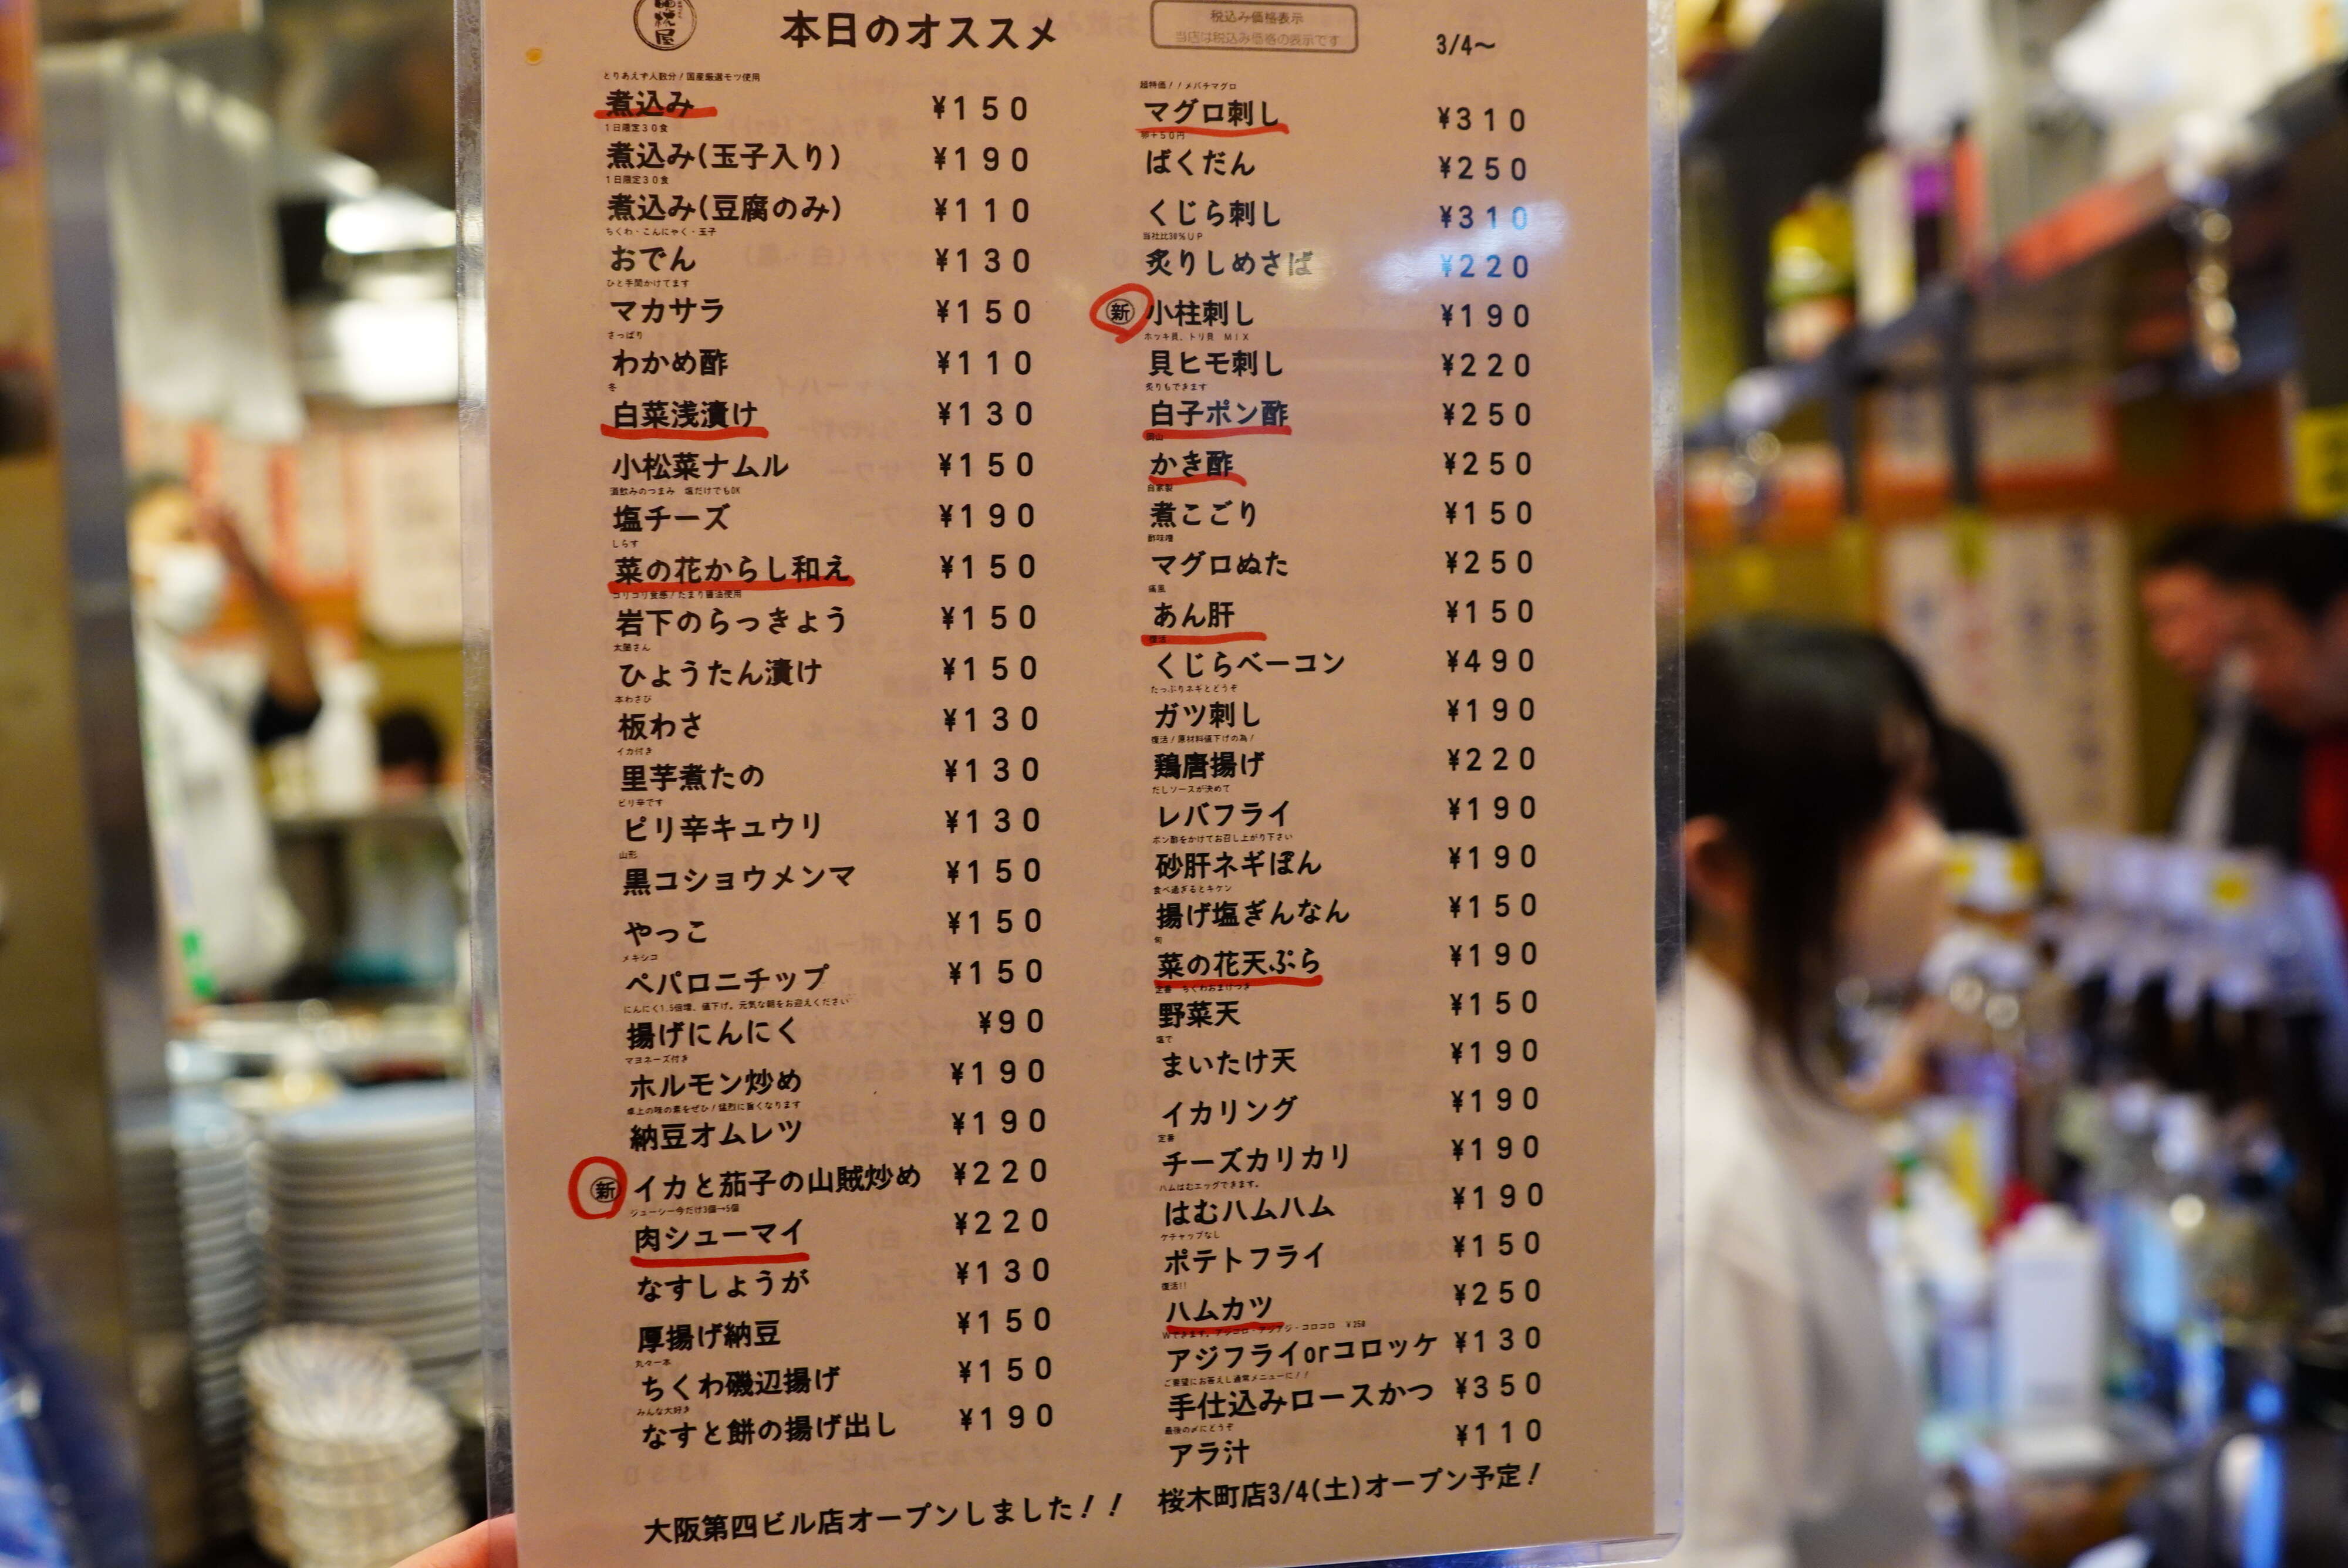 本日のオススメ
税込み価格表示
当店は税込み価格の表示です
3/4～
とりあえず人数分！国産厳選モツ使用
煮込み ¥150
1日限定30食
煮込み(玉子入り) ¥190
1日限定30食
煮込み(豆腐のみ) ¥110
ちくわ・こんにゃく・玉子
おでん ¥130
ひと手間かけてます
マカサラ ¥150
さっぱり
わかめ酢 ¥110
冬
白菜浅漬け ¥130
小松菜ナムル ¥150
酒飲みのつまみ 塩だけでもOK
塩チーズ ¥190
しらす
菜の花からし和え ¥150
コリコリ食感！たまり醤油使用
岩下のらっきょう ¥150
太閤さん
ひょうたん漬け ¥150
本わさび
板わさ ¥130
イカ付き
里芋煮たの ¥130
ピリ辛です
ピリ辛キュウリ ¥130
山形
黒コショウメンマ ¥150
やっこ ¥150
メキシコ
ペパロニチップ ¥150
にんにく1.5倍増、値下げ。元気な朝をお迎えください
揚げにんにく ¥90
マヨネーズ付き
ホルモン炒め ¥190
卓上の味の素をぜひ！猛烈に旨くなります
納豆オムレツ ¥190
新 イカと茄子の山賊炒め ¥220
ジューシー今だけ3個→5個
肉シューマイ ¥220
なすしょうが ¥130
厚揚げ納豆 ¥150
丸々一本
ちくわ磯辺揚げ ¥150
みんな大好き
なすと餅の揚げ出し ¥190
超特価！！メバチマグロ
マグロ刺し ¥310
卵＋50円
ばくだん ¥250
くじら刺し ¥310
当社比30%UP
炙りしめさば ¥220
新 小柱刺し ¥190
ホッキ貝、トリ貝 MIX
貝ヒモ刺し ¥220
炙りもできます
白子ポン酢 ¥250
岡山
かき酢 ¥250
自家製
煮こごり ¥150
酢味噌
マグロぬた ¥250
痛風
あん肝 ¥150
復活
くじらベーコン ¥490
たっぷりネギとどうぞ
ガツ刺し ¥190
復活！原材料値下げの為！
鶏唐揚げ ¥220
だしソースが決めて
レバフライ ¥190
ポン酢をかけてお召し上がり下さい
砂肝ネギぽん ¥190
食べ過ぎるとキケン
揚げ塩ぎんなん ¥150
旬
菜の花天ぷら ¥190
定番 ちくわおまけつき
野菜天 ¥150
塩で
まいたけ天 ¥190
イカリング ¥190
定番
チーズカリカリ ¥190
ハムはむエッグできます。
はむハムハム ¥190
ケチャップなし
ポテトフライ ¥150
復活!!
ハムカツ ¥250
Wできます。アジコロ・アジアジ・コロコロ ¥250
アジフライorコロッケ ¥130
ご要望にお答えし通常メニューに！！
手仕込みロースかつ ¥350
最後の〆にどうぞ
アラ汁 ¥110
大阪第四ビル店オープンしました！！ 桜木町店3/4(土)オープン予定！